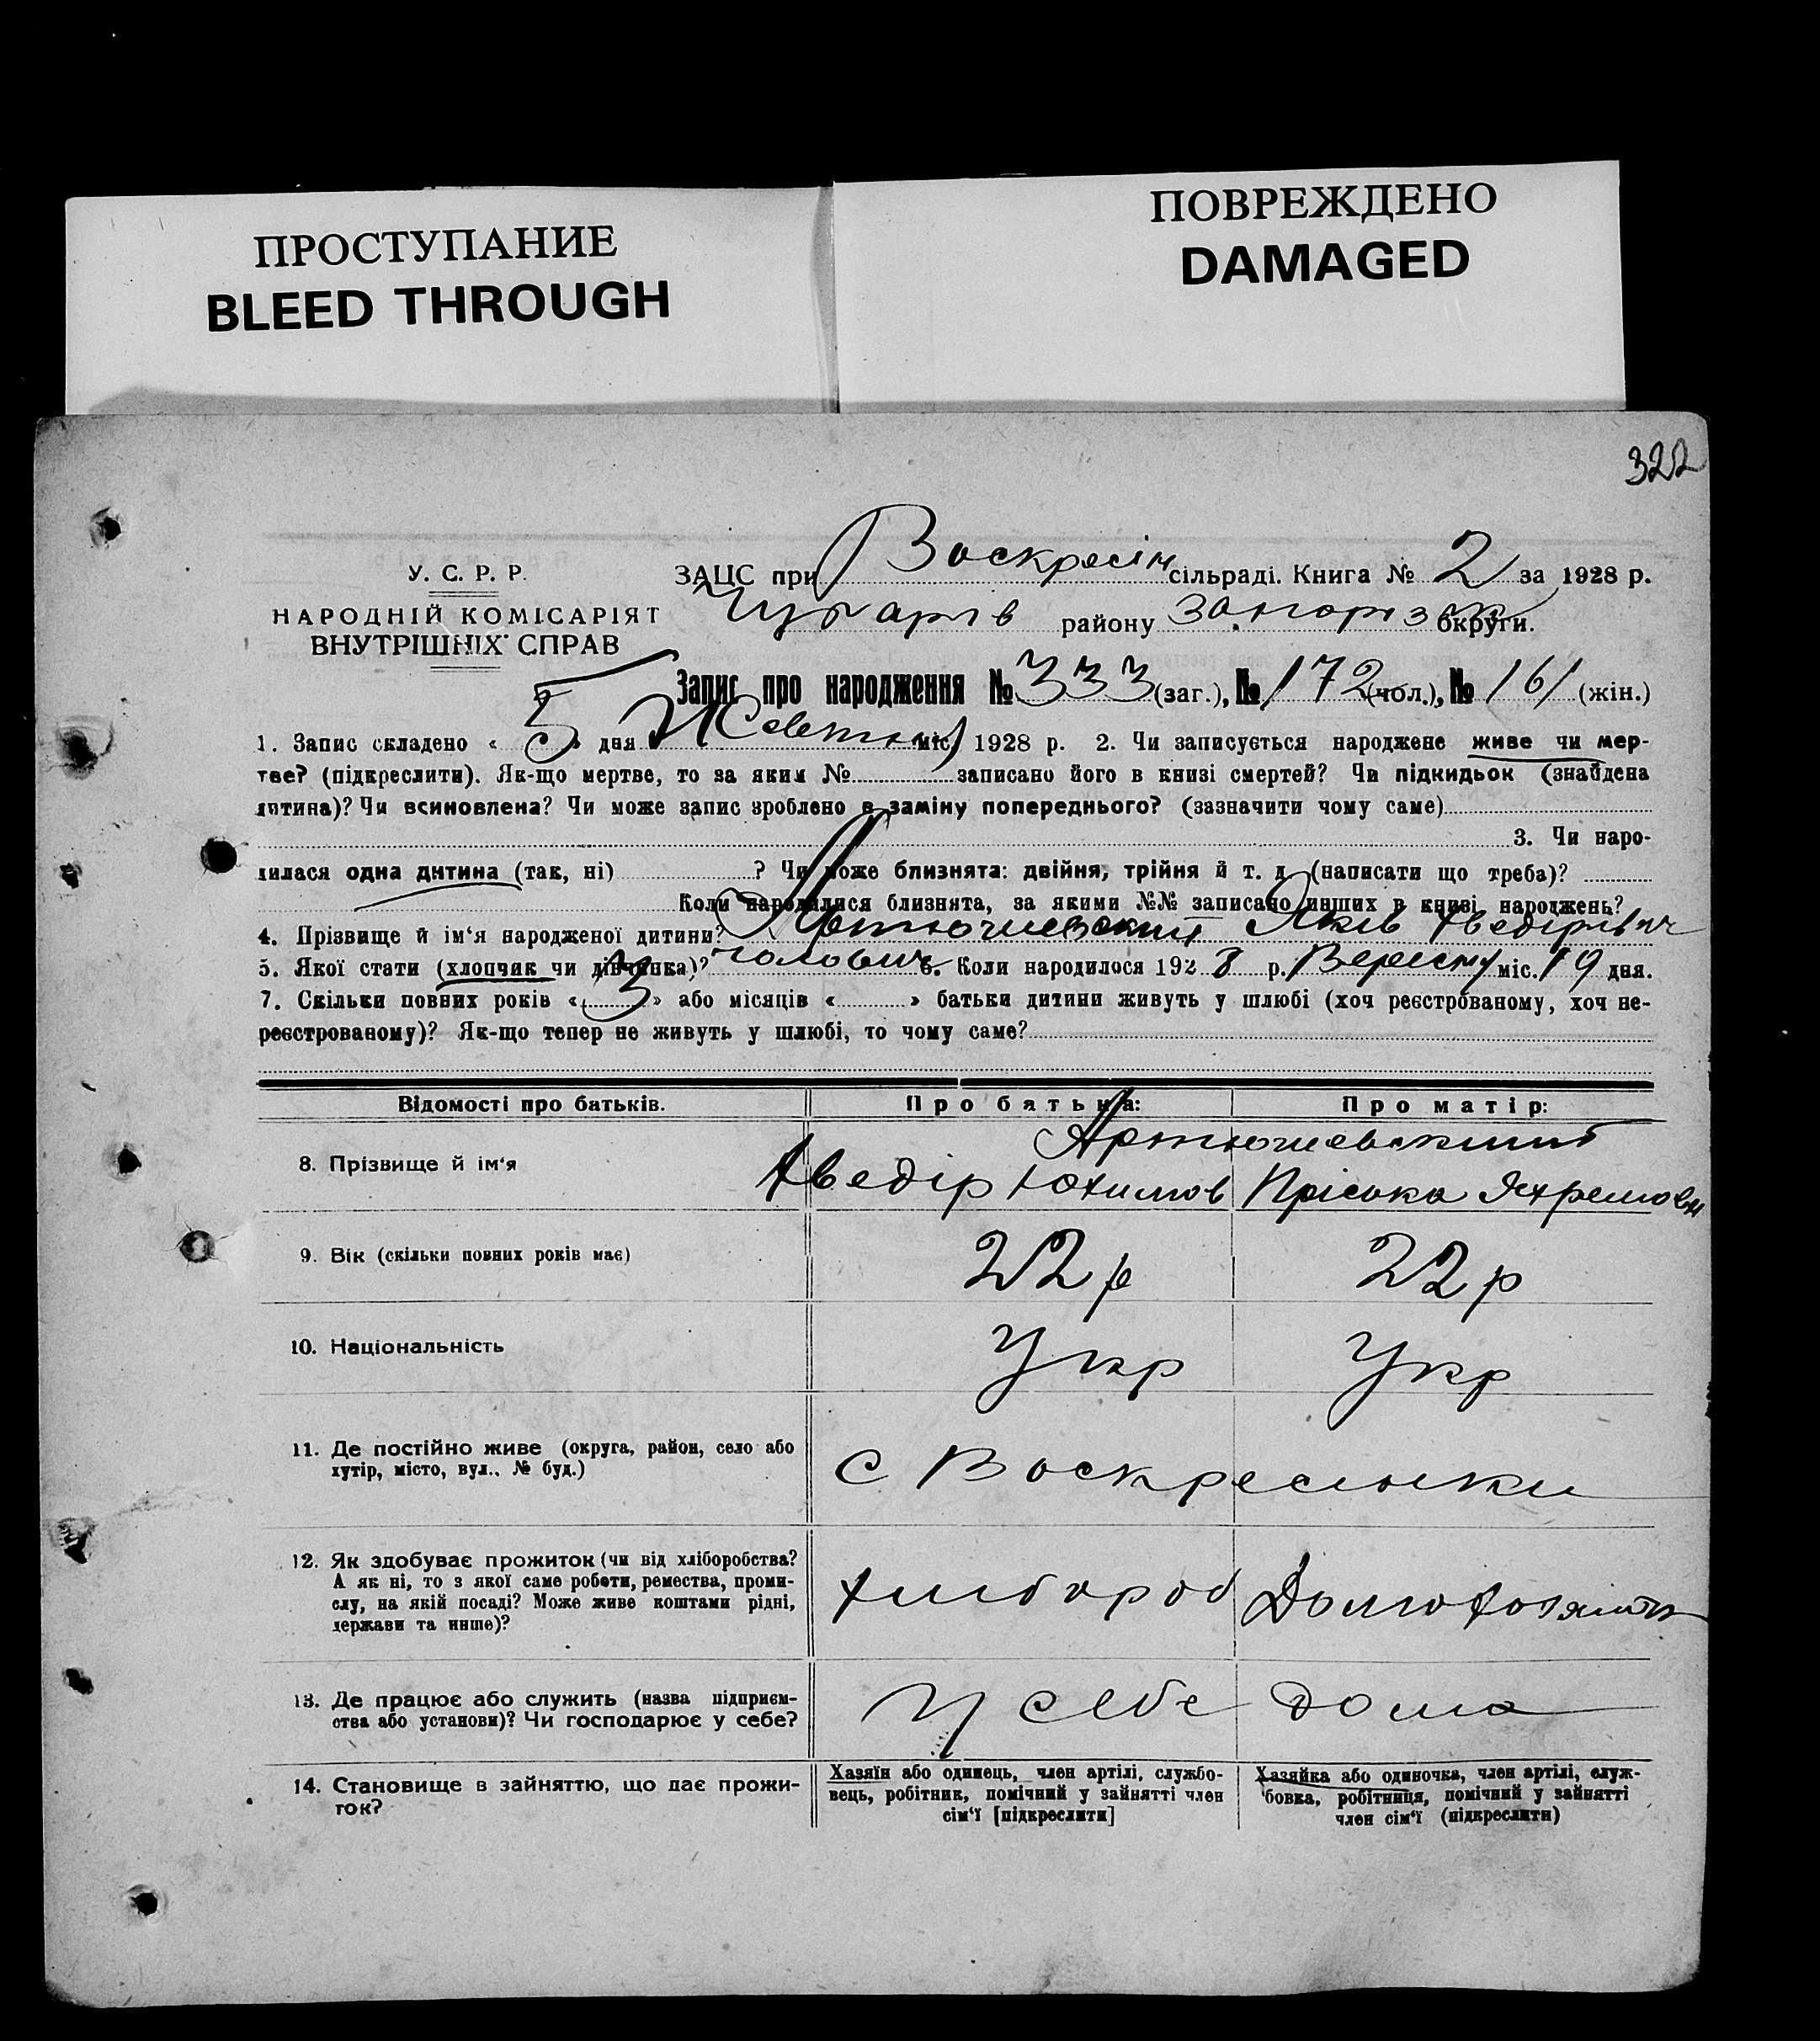 ПРОСТУПАНИЕ
BLEED THROUGH
ПОВРЕЖДЕНО
DAMAGED
322
У. С. Р. Р.
НАРОДНІЙ КОМІСАРІЯТ
ВНУТРІШНІХ СПРАВ
ЗАЦС при Воскресін сільраді. Книга № 2 за 1928 р.
Чубарів району Запоріз округи.
Запис про народження № 333 (заг.), № 172 (чол.), № 161 (жін.)
1. Запис складено « 5 » дня Жовтня міс. 1928 р. 2. Чи записується народжене живе чи мер-
тве? (підкреслити). Як-що мертве, то за яким № записано його в книзі смертей? Чи підкидьок (знайдена
дитина)? Чи всиновлена? Чи може запис зроблено в заміну попереднього? (зазначити чому саме)
3. Чи наро-
дилася одна дитина (так, ні) ? Чи може близнята: двійня, трійня й т. д. (написати що треба)?
Коли народилися близнята, за якими №№ записано инших в книзі народжень?
4. Прізвище й ім‘я народженої дитини? Яків Хведірович
5. Якої стати (хлопчик чи дівчинка)? чоловіч 6. Коли народилося 1928 р. Вересня міс. 19 дня.
7. Скільки повних років « 3 » або місяців « » батьки дитини живуть у шлюбі (хоч реєстрованому, хоч не-
реєстрованому)? Як-що тепер не живуть у шлюбі, то чому саме?
Відомості про батьків. Про батька: Про матір:
8. Прізвище й ім‘я
Хведір Юхимов Пріська Яхремовн
9. Вік (скільки повних років має) 22 р 22 р
10. Національність Укр Укр
11. Де постійно живе (округа, район, село або
хутір, місто, вул.. № буд.)
с Воскресенки
12. Як здобуває прожиток (чи від хліборобства?
А як ні, то з якої саме роботи, ремества, проми-
слу, на якій посаді? Може живе коштами рідні,
держави та инше)?
хлибороб
13. Де працює або служить (назва підприєм-
ства або установи)? Чи господарює у себе?
у себе дома
14. Становище в зайняттю, що дає прожи-
ток?
Хазяїн або одинець, член артілі, службо-
вець, робітник, помічний у зайнятті член
сім‘ї [підкреслити]
Хазяйка або одиночка, член артілі, служ-
бовка, робітниця, помічний у зайнятті
член сім‘ї (підкреслити)